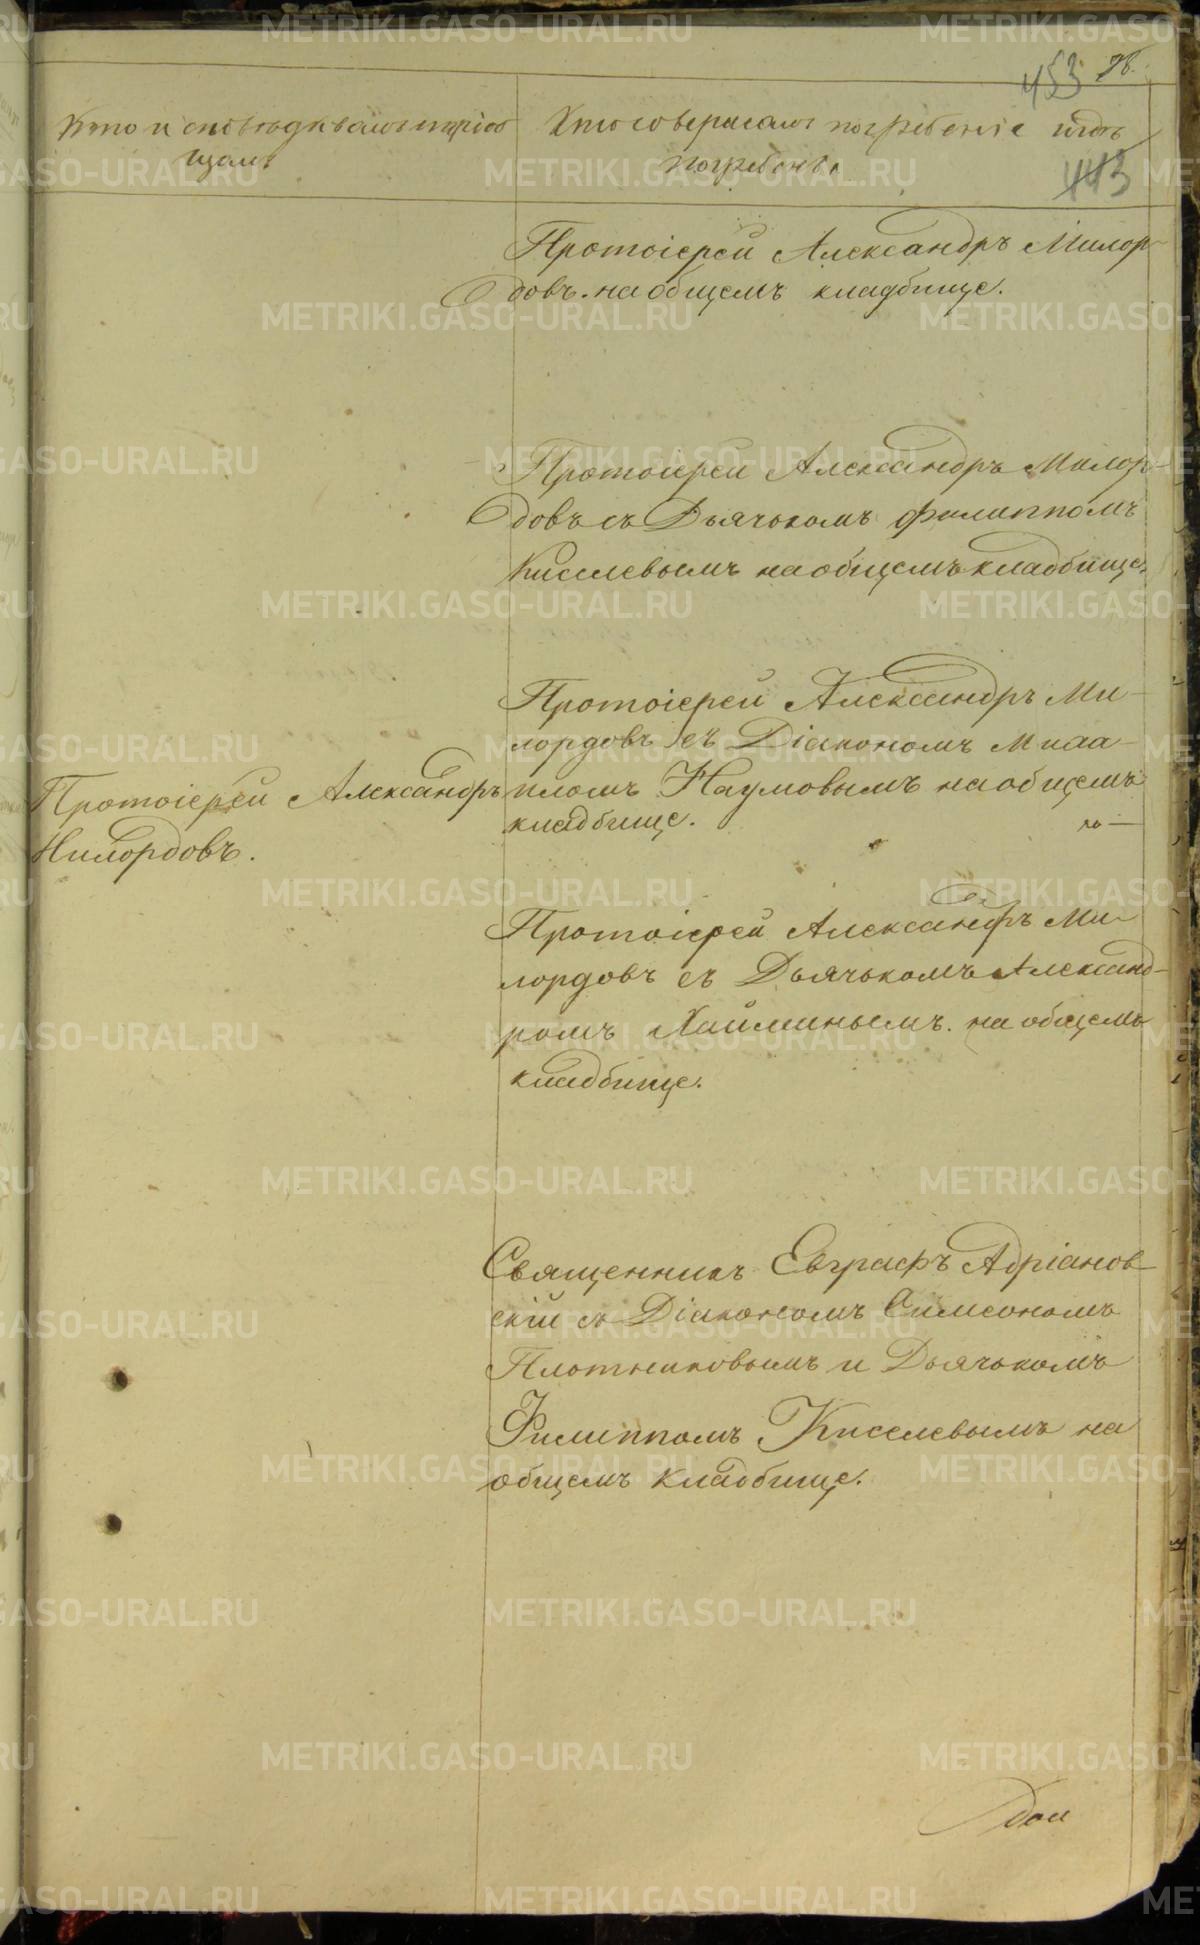 453 78.
Кто исповѣдывалъ и пріоб
щалъ
Кто совершалъ погребеніе и гдѣ
погребены
443
Протоіерей Александръ Милор-
довъ. на общемъ кладбище.
Протоіерей Александръ Милор-
довъ съ Дьячькомъ Филиппомъ
Киселевымъ на общемъ кладбище.
Протоіерей Александръ Ми-
лордовъ съ Діакономъ Михаи-
иломъ Наумовымъ на общемъ
кладбище.
Протоіерей Александръ
Милордовъ.
Протоіерей Александръ Ми-
лордовъ съ Дьячькомъ Александ-
ромъ Хайминымъ. на общемъ
кладбище.
Священникъ Евграфъ Адріанов-
скій съ Діакономъ Симеономъ
Плотниковымъ и Дьячькомъ
Филиппомъ Киселевымъ на
общемъ кладбище.
METRIKI.GASO-URAL.RU